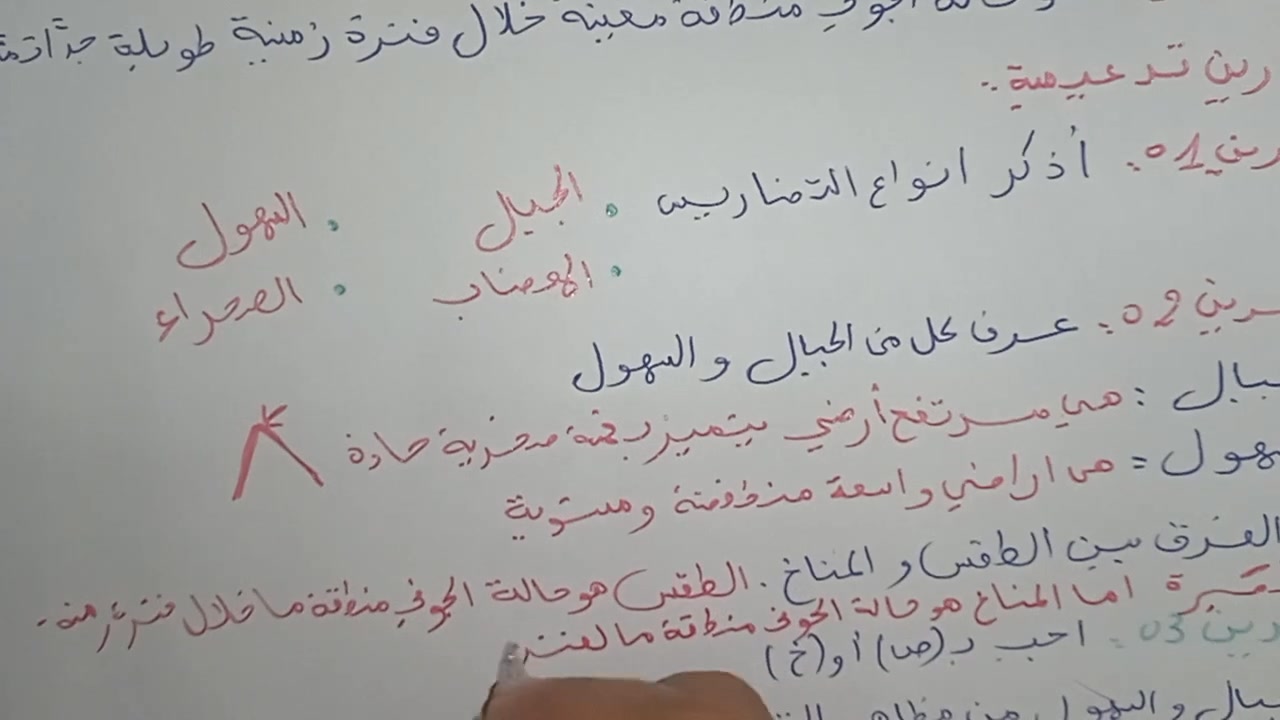 الجو في منطقة معينة خلال فترة زمنية طويلة جدًا
رين تدعيمية..
رين 01: أذكر انواع التضاريس • الجبل • السهول
• الهضاب • الصحراء
رين 02: عرف كل من الجبال و السهول
بال: هي مرتفع أرضي يتميز بقمة صخرية حادة
هول = هي اراضي واسعة منخفضة و مستوية
الفرق بين الطقس و المناخ. الطقس هو حالة الجو في منطقة ما خلال فترة زمنية
قصيرة اما المناخ هو حالة الجو في منطقة ما لفتر
رين 03: اجب بـ (ص) أو (خ)
بال و السهول من